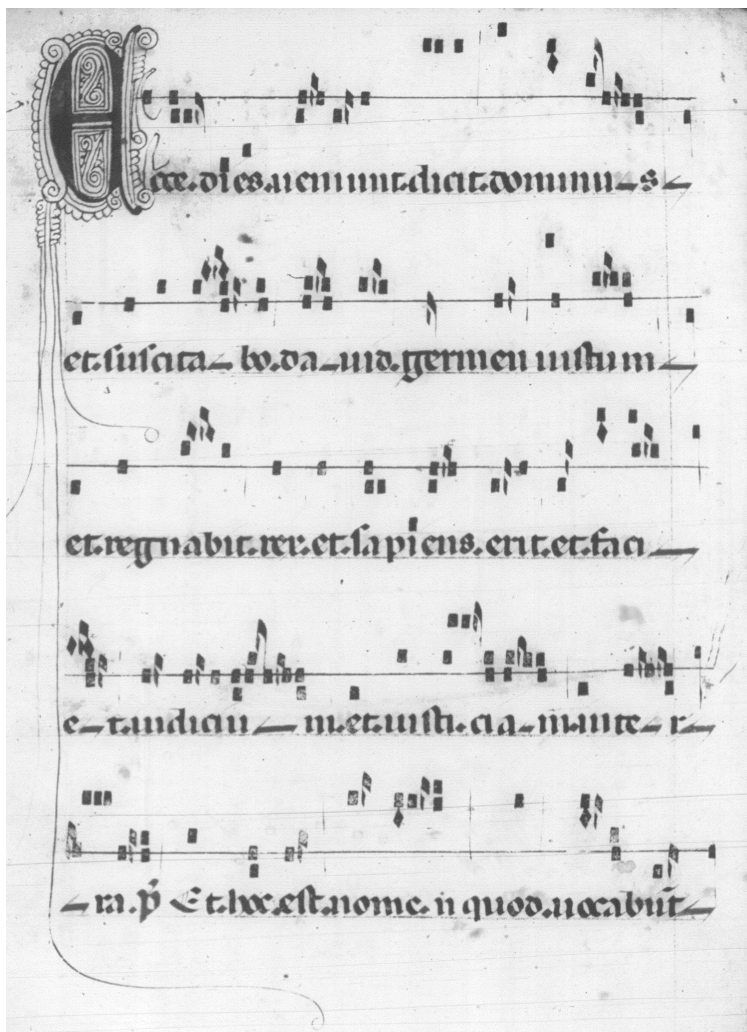 Ecce. dies. ueniunt. dicit. dominu-s-
et. suscita- bo. da-uid. germen iustum-
et. regnabit. rex. et. sapiens. erit. et. faci-
e-t. iudiciu-m. et. iusti. cia-m. in te-r-
-ra. p̄ Et. hoc. est. nome. ii quod. uocabūt-